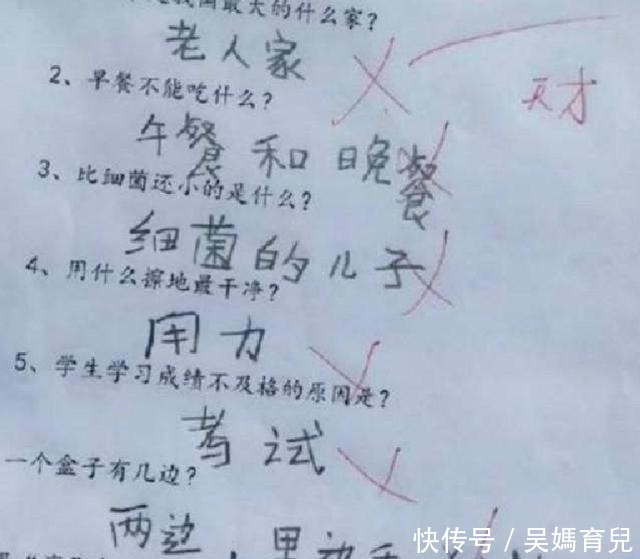 我国最大的什么家？
老人家
天才
2、早餐不能吃什么？
午餐和晚餐
3、比细菌还小的是什么？
细菌的儿子
4、用什么擦地最干净？
用力
5、学生学习成绩不及格的原因是？
考试
一个盒子有几边？
两边
快传号/吴媽育兒